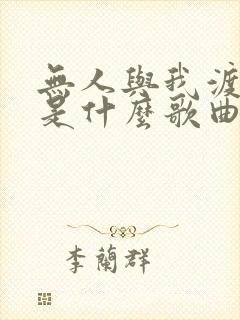 無人與我渡
是什麼歌曲
李蘭群